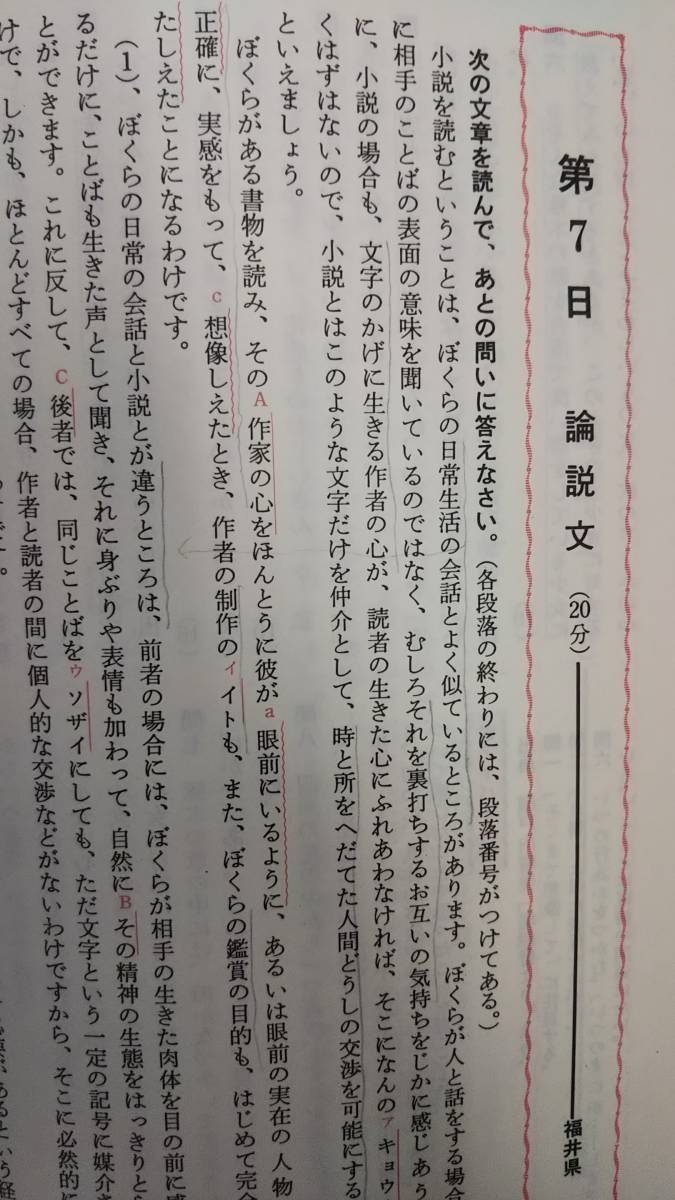 第7日 論説文 (20分) 福井県
次の文章を読んで、あとの問いに答えなさい。(各段落の終わりには、段落番号がつけてある。)
小説を読むということは、ぼくらの日常生活の会話とよく似ているところがあります。ぼくらが人と話をする場合
に相手のことばの表面の意味を聞いているのではなく、むしろそれを裏打ちするお互いの気持ちをじかに感じあう
に、小説の場合も、文字のかげに生きる作者の心が、読者の生きた心にふれあわなければ、そこになんのァキョウ
くはずはないので、小説とはこのような文字だけを仲介として、時と所をへだてた人間どうしの交渉を可能にする
といえましょう。
ぼくらがある書物を読み、そのA作家の心をほんとうに彼がa眼前にいるように、あるいは眼前の実在の人物
正確に、実感をもって、c想像しえたとき、作者の制作のィイトも、また、ぼくらの鑑賞の目的も、はじめて完全
たしえたことになるわけです。
(1)、ぼくらの日常の会話と小説とが違うところは、前者の場合には、ぼくらが相手の生きた肉体を目の前に
るだけに、ことばも生きた声として聞き、それに身ぶりや表情も加わって、自然にBその精神の生態をはっきりと
とができます。これに反して、C後者では、同じことばをゥソザイにしても、ただ文字という一定の記号に媒介
けで、しかも、ほとんどすべての場合、作者と読者の間に個人的な交渉などがないわけですから、そこに必然的に
です。
があるという経